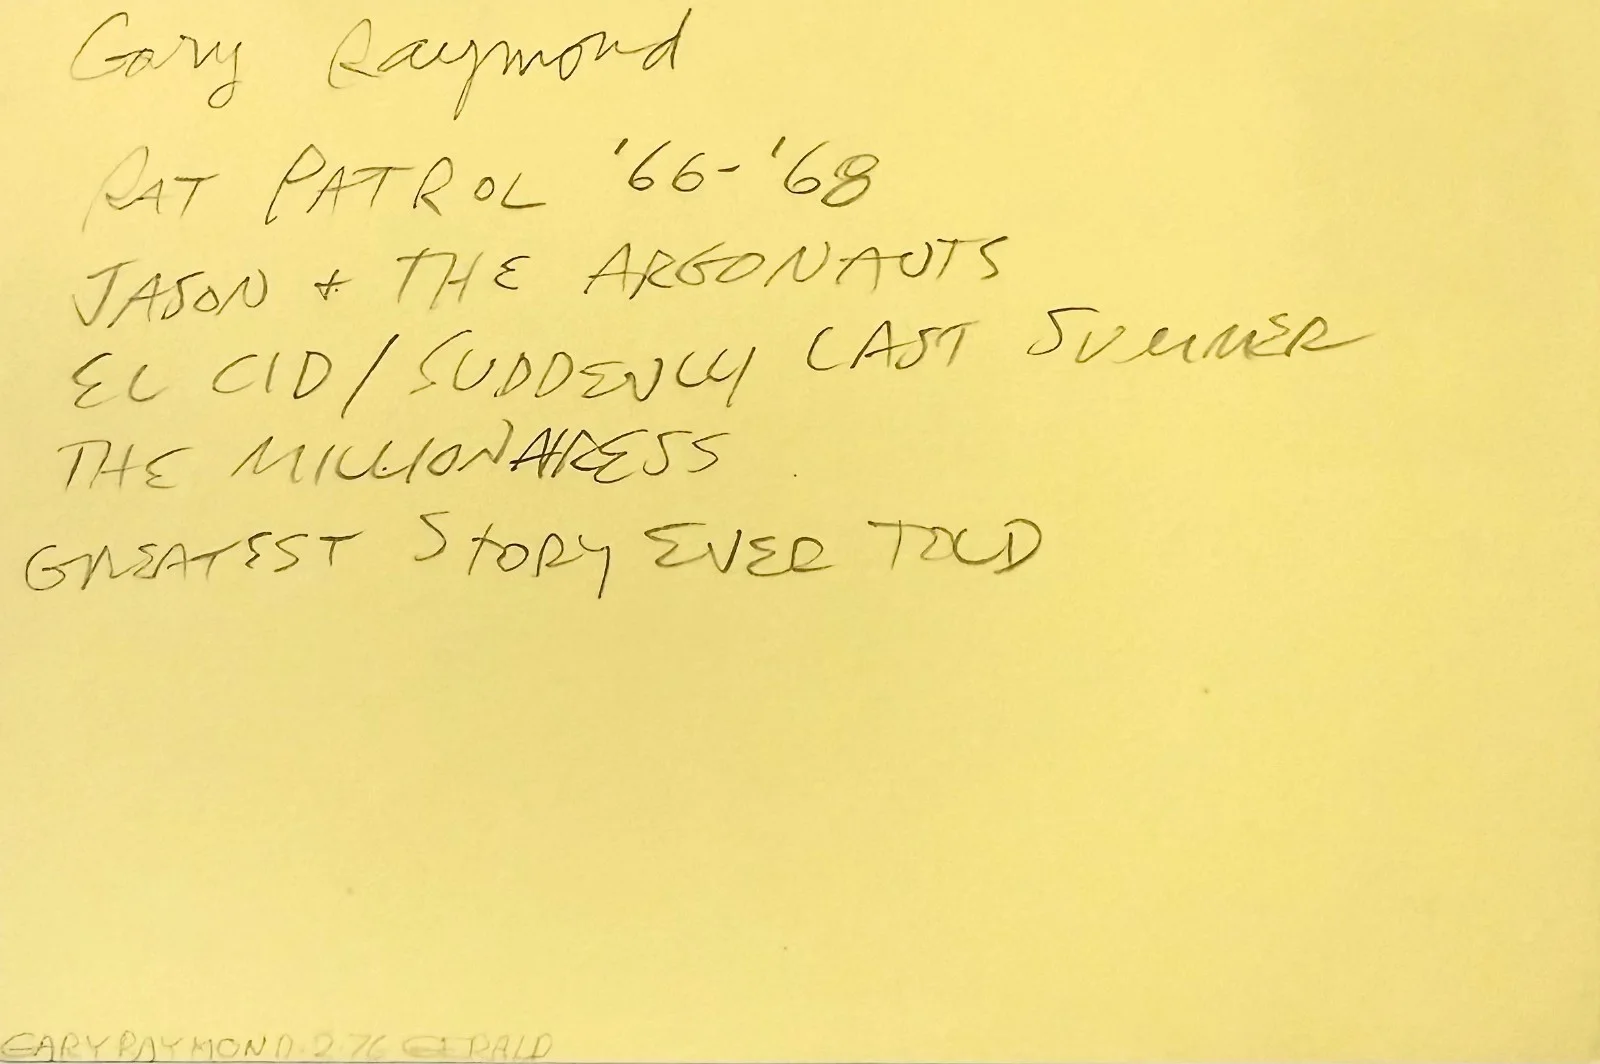 Gary Raymond
RAT PATROL '66-'68
JASON + THE ARGONAUTS
EL CID / SUDDENLY LAST SUMMER
THE MILLIONAIRESS
GREATEST STORY EVER TOLD
GARY RAYMOND. 2.76 GERALD